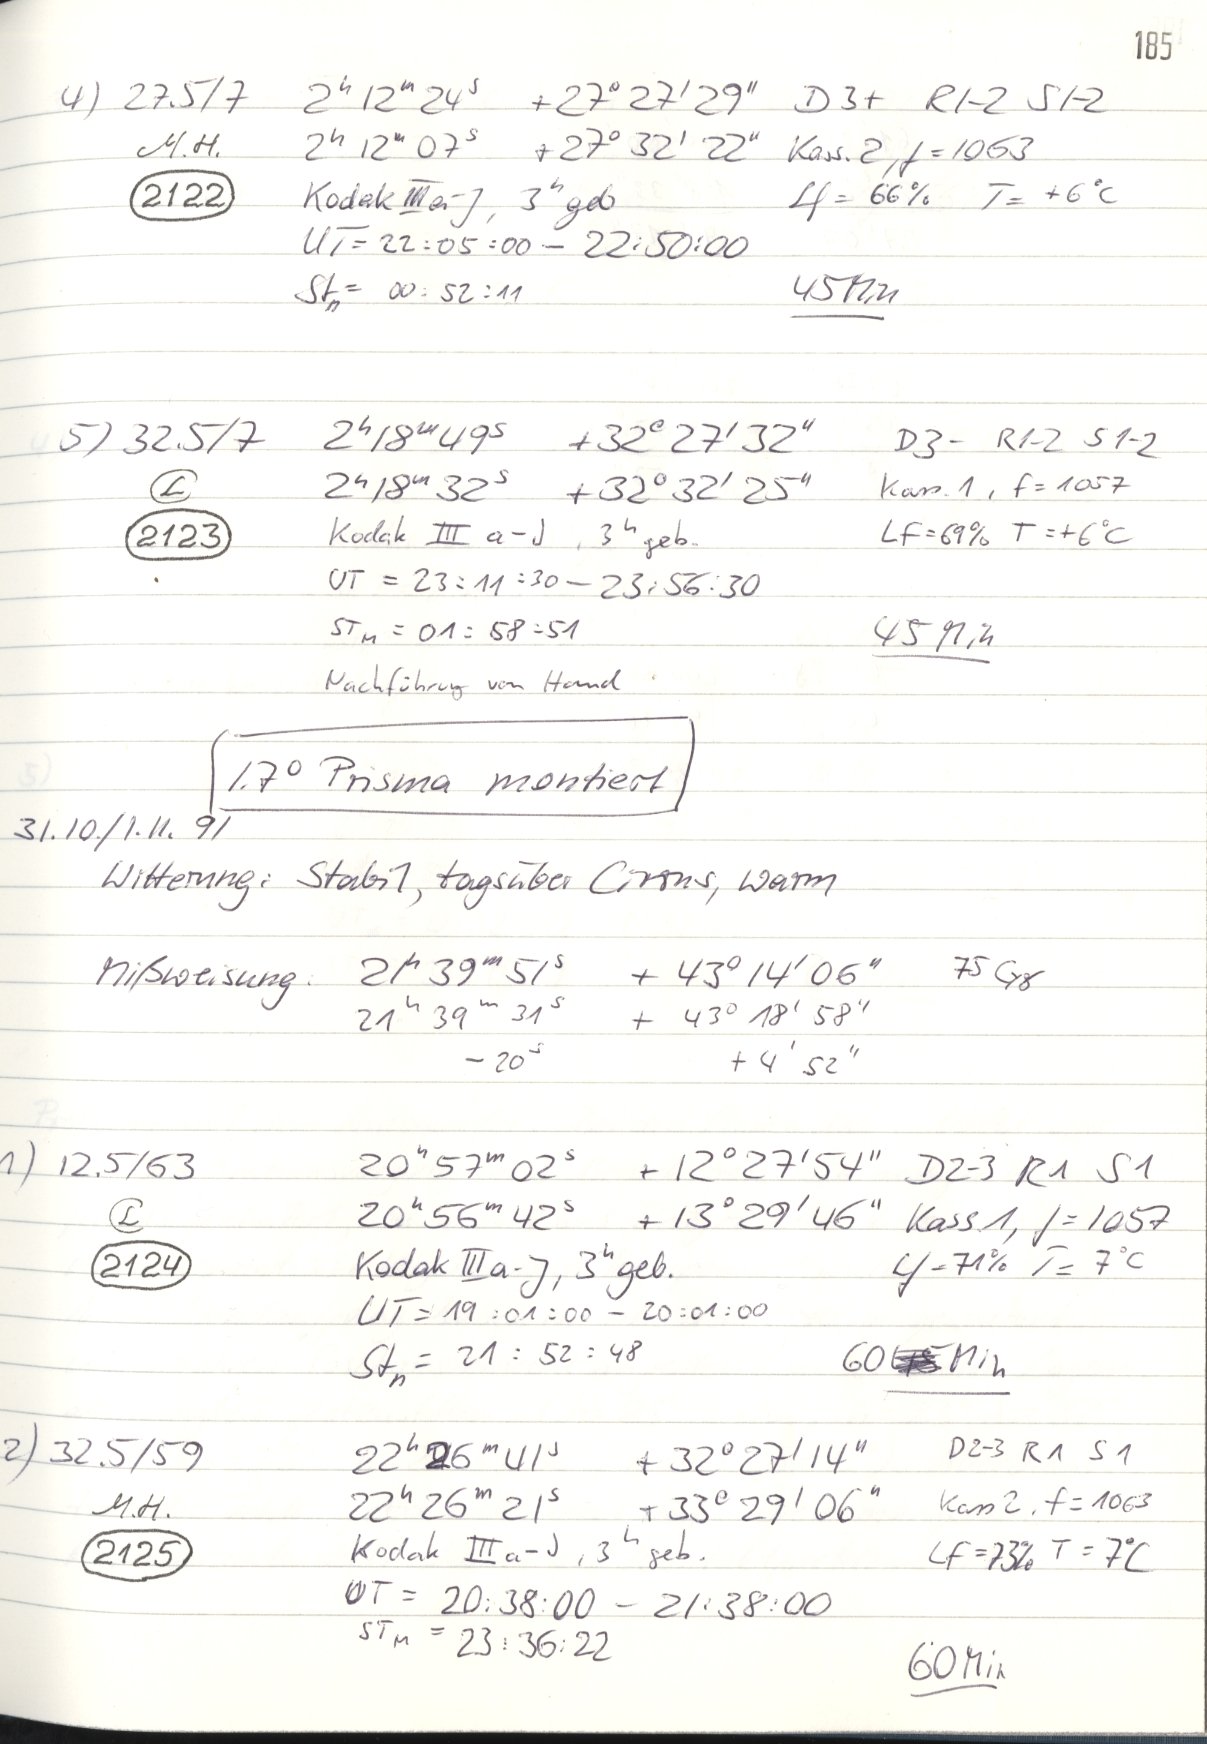 185
4) 27.5/7 2ʰ12ᵐ24ˢ +27°27'29" D3+ R1-2 S1-2
M.H. 2ʰ12ᵐ07ˢ +27°32'22" Kass. 2, f=1063
2122 Kodak IIIa-J, 3ʰ geb Lf = 66% T= +6°C
UT= 22:05:00 – 22:50:00
Stₙ= 00:52:11 45 Min
5) 32.5/7 2ʰ18ᵐ49ˢ +32°27'32" D3- R1-2 S1-2
2ʰ18ᵐ32ˢ +32°32'25" Kass. 1, f=1057
2123 Kodak III a-J, 3ʰ geb. LF=69% T=+6°C
UT = 23:11:30 – 23:56:30
STₘ = 01:58:51 45 Min
Nachführung von Hand
1.7° Prisma montiert
31.10./1.11. 91
Witterung: Stabil, tagsüber Cirrus, warm
Mißweisung: 21ʰ39ᵐ51ˢ + 43°14'06" 75 Cyg
21ʰ39ᵐ31ˢ + 43°18'58"
-20ˢ +4'52"
1) 12.5/63 20ʰ57ᵐ02ˢ +12°27'54" D2-3 R1 S1
20ʰ56ᵐ42ˢ +13°29'46" Kass 1, f=1057
2124 Kodak IIIa-J, 3ʰ geb. Lf=71% T= 7°C
UT= 19:01:00 – 20:01:00
Stₙ= 21:52:48 60 Min
2) 32.5/59 22ʰ26ᵐ41ˢ +32°27'14" D2-3 R1 S1
M.H. 22ʰ26ᵐ21ˢ +33°29'06" Kass 2, f=1063
2125 Kodak IIIa-J, 3ʰ geb. LF=73% T=7°C
UT = 20:38:00 – 21:38:00
STₘ = 23:36:22
60 Min